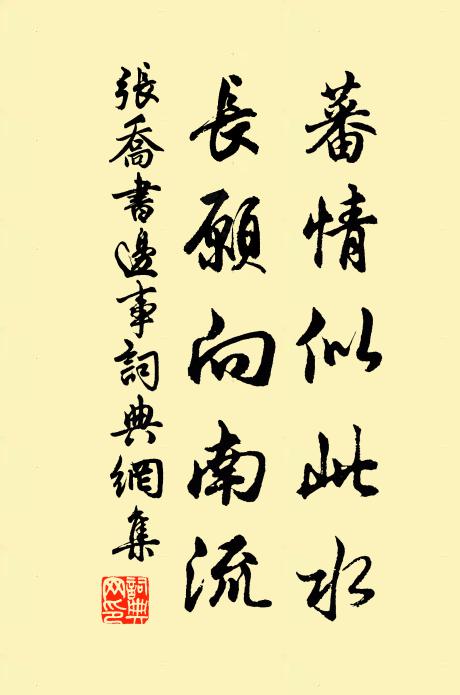 蕃情似此水
長願向南流
張喬書邊事詞典網集
詞典
网印